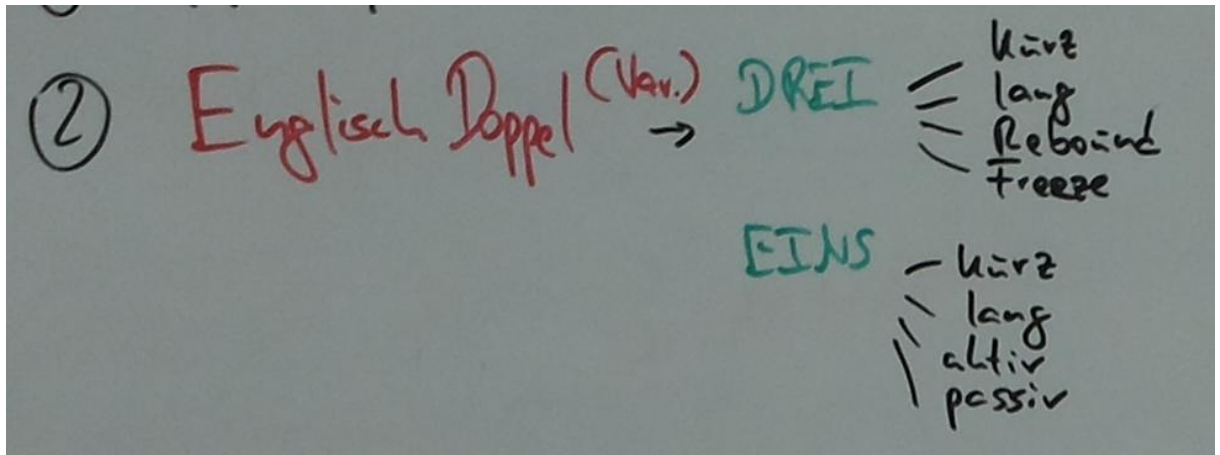 ② Englisch Doppel (Var.) → DREI
kurz
lang
Rebound
Freeze
EINS
kurz
lang
aktiv
passiv